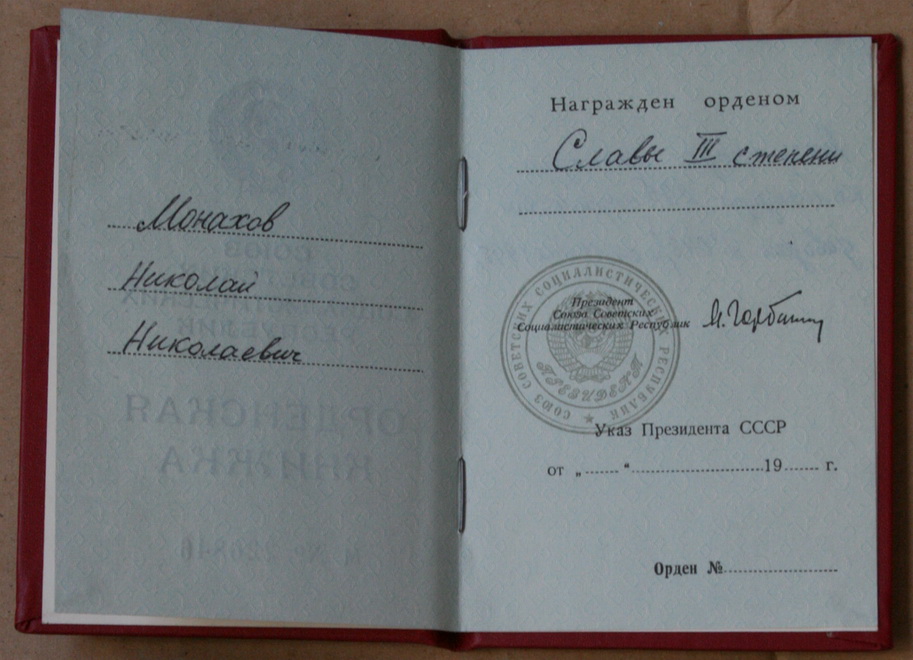 Монахов
Николай
Николаевич
Награжден орденом
Славы III степени
Президент
Союза Советских
Социалистических Республик
СОЮЗ СОВЕТСКИХ СОЦИАЛИСТИЧЕСКИХ РЕСПУБЛИК
ПРЕЗИДЕНТ
Указ Президента СССР
от „ “ 19 г.
Орден №